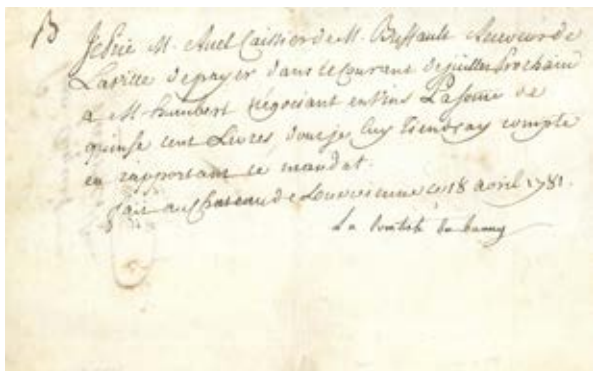 B
Je prie M. Auel Caissier de M. Buffault Receveur de
Laville de payer dans le Courant de juillet Prochain
a M. humbert négociant en vins La some de
quinse cent Livres, dont je luy tiendray compte
en rapportant ce mandat.
fait au Chateau de Louveciennes ce 18 avril 1781.
La Comtesse du barry